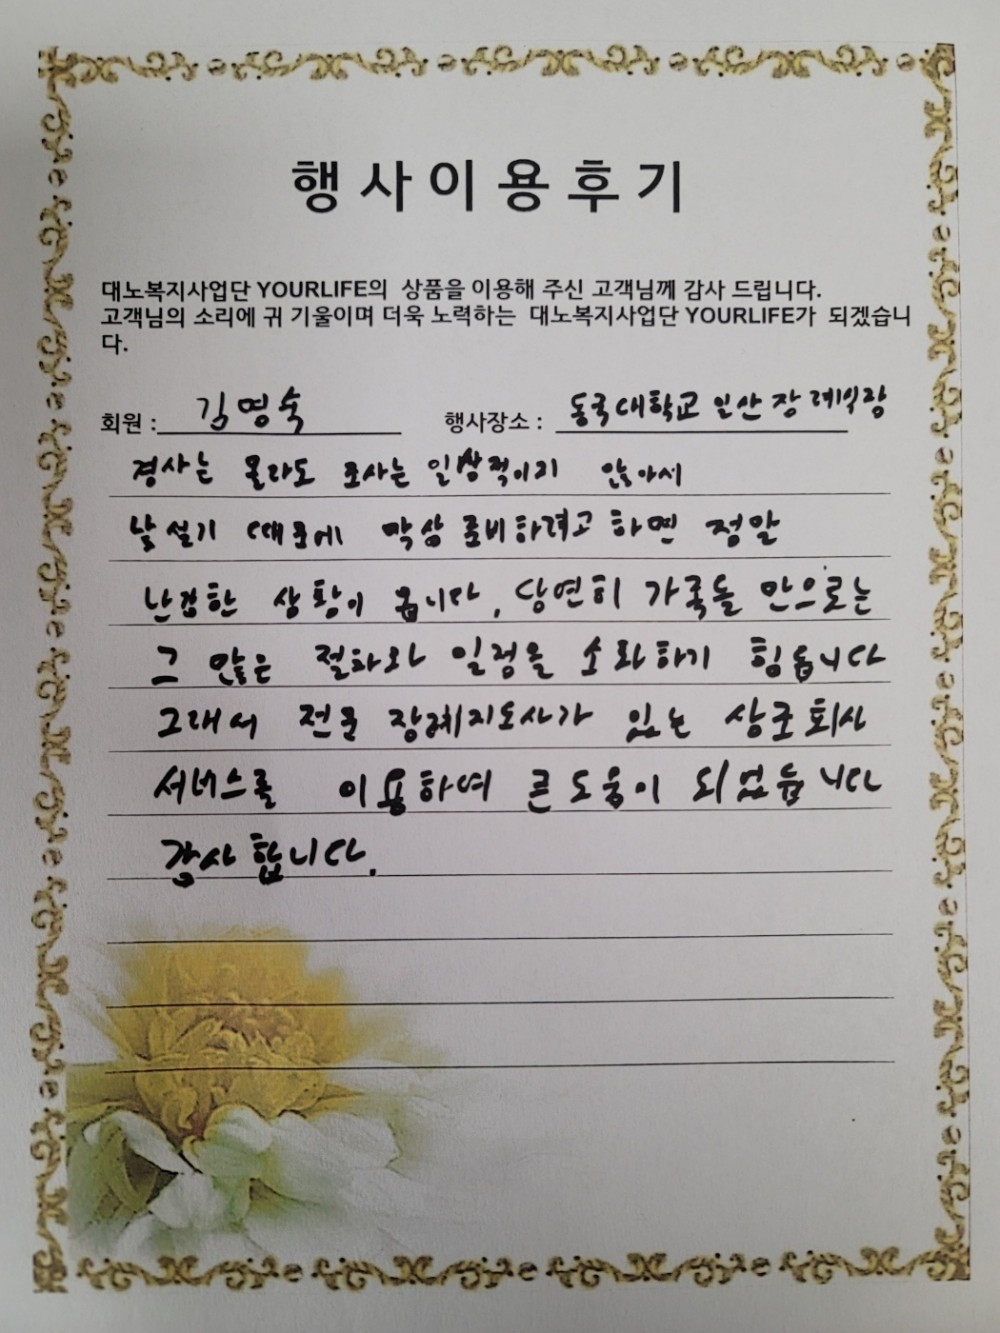 행사이용후기
대노복지사업단 YOURLIFE의 상품을 이용해 주신 고객님께 감사 드립니다.
고객님의 소리에 귀 기울이며 더욱 노력하는 대노복지사업단 YOURLIFE가 되겠습니
다.
회원 : 김명숙 행사장소 : 동국대학교 일산 장례식장
경사는 몰라도 조사는 일상적이지 않아서
낯설기 때문에 막상 준비하려고 하면 정말
난감한 상황이 옵니다, 당연히 가족들 만으로는
그 많은 절차와 일정을 소화하기 힘듭니다
그래서 전문 장례지도사가 있는 상조회사
서비스를 이용하여 큰 도움이 되었습니다
감사합니다.